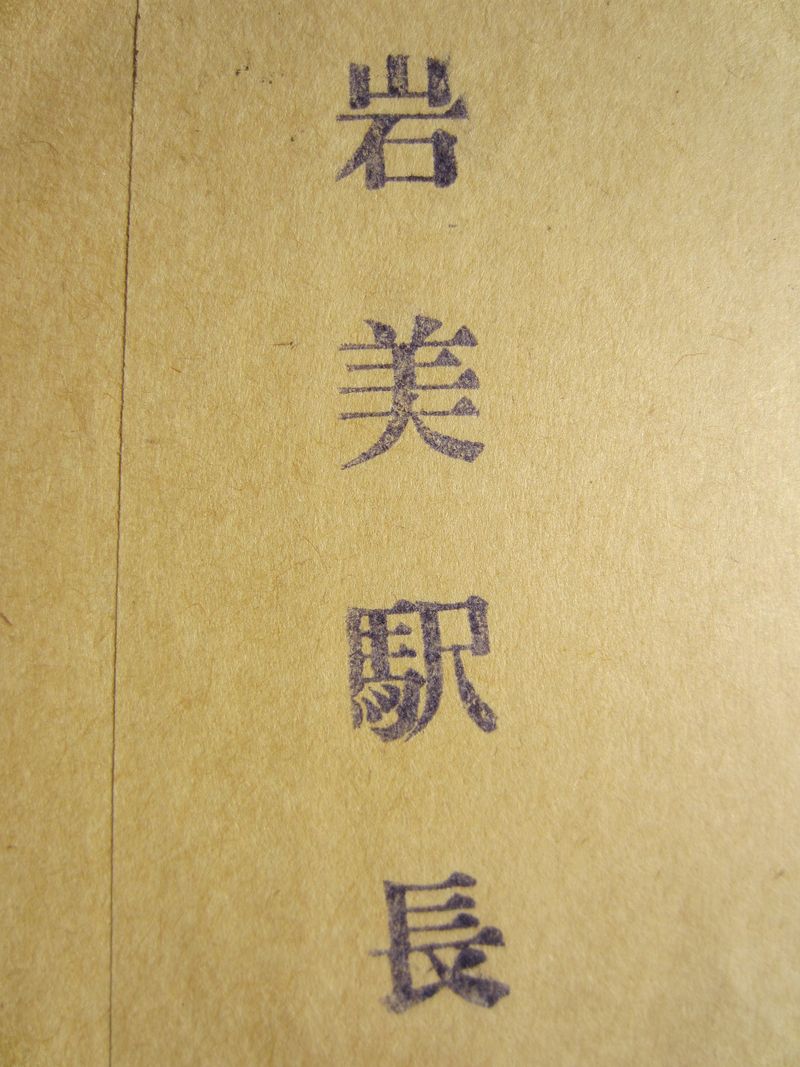 岩美駅長